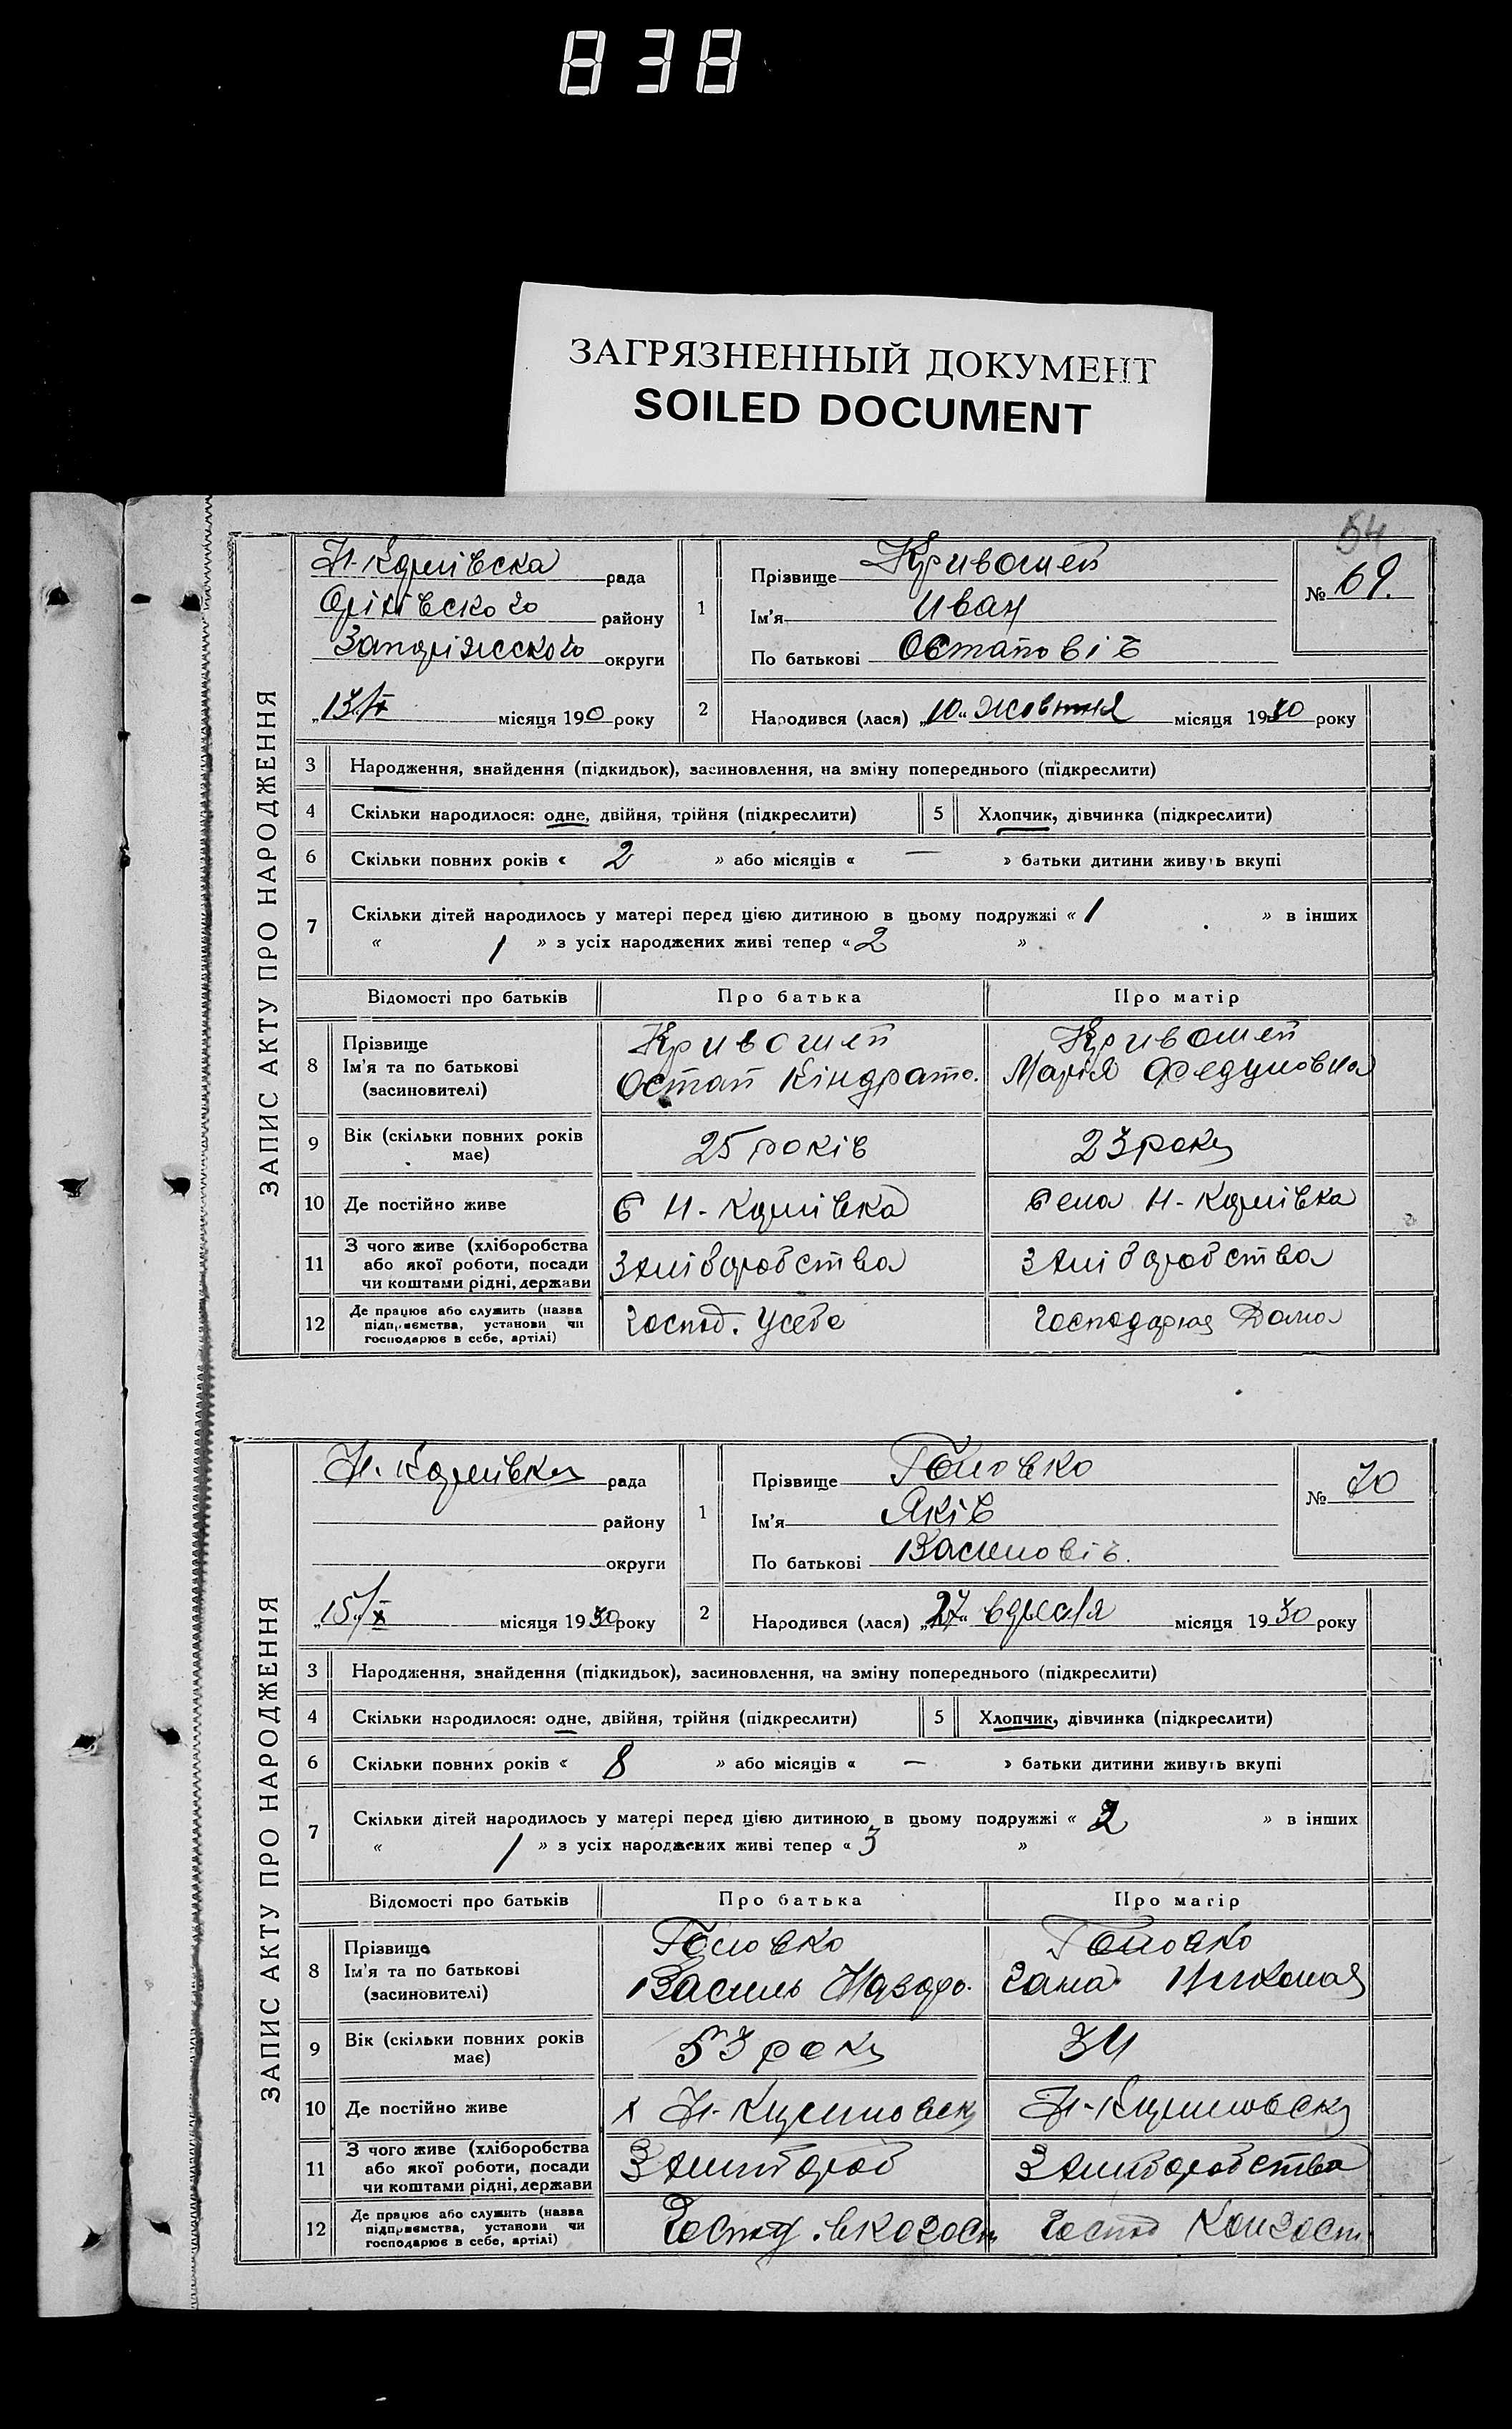 838
ЗАГРЯЗНЕННЫЙ ДОКУМЕНТ
SOILED DOCUMENT
54
ЗАПИС АКТУ ПРО НАРОДЖЕННЯ
Н-Карлівска рада
Оріхівского району
Запоріжского округи
„13/X місяця 190 року
1
Прізвище Кривошей
Ім'я Иван
По батькові Остаповіч
№ 69.
2
Народився (лася) „10" жовтня місяця 1930 року
3 Народження, знайдення (підкидьок), засиновлення, на зміну попереднього (підкреслити)
4 Скільки народилося: одне, двійня, трійня (підкреслити) 5 Хлопчик, дівчинка (підкреслити)
6 Скільки повних років « 2 » або місяців « — » батьки дитини живуть вкупі
7 Скільки дітей народилось у матері перед цією дитиною в цьому подружжі « 1 » в інших
« 1 » з усіх народжених живі тепер « 2 »
Відомості про батьків Про батька Про матір
8 Прізвище Ім'я та по батькові (засиновителі)
Кривошей Остап Кіндрато.
Кривошей Марія
9 Вік (скільки повних років має) 25 років 23 роки
10 Де постійно живе С Н-Карлівка Села Н-Карлівка
11 З чого живе (хліборобства або якої роботи, посади чи коштами рідні, держави
З хліборобства З хліборобства
12 Де працює або служить (назва підприємства, установи чи господарює в себе, артілі)
Господ. усебе Господарюя Дома
ЗАПИС АКТУ ПРО НАРОДЖЕННЯ
Н-Карлівка рада
району
округи
„15"/X місяця 1930 року
1
Прізвище Головко
Ім'я Яків
По батькові Василовіч.
№ 70
2
Народився (лася) „27" вересня місяця 1930 року
3 Народження, знайдення (підкидьок), засиновлення, на зміну попереднього (підкреслити)
4 Скільки народилося: одне, двійня, трійня (підкреслити) 5 Хлопчик, дівчинка (підкреслити)
6 Скільки повних років « 8 » або місяців « — » батьки дитини живуть вкупі
7 Скільки дітей народилось у матері перед цією дитиною в цьому подружжі « 2 » в інших
« 1 » з усіх народжених живі тепер « 3 »
Відомості про батьків Про батька Про матір
8 Прізвище Ім'я та по батькові (засиновителі)
Головко Василь Назаро.
Головко
9 Вік (скільки повних років має) 53 роки 34
10 Де постійно живе
11 З чого живе (хліборобства або якої роботи, посади чи коштами рідні, держави
З хлібороб З хліборобства
12 Де працює або служить (назва підприємства, установи чи господарює в себе, артілі)
Господ Господ